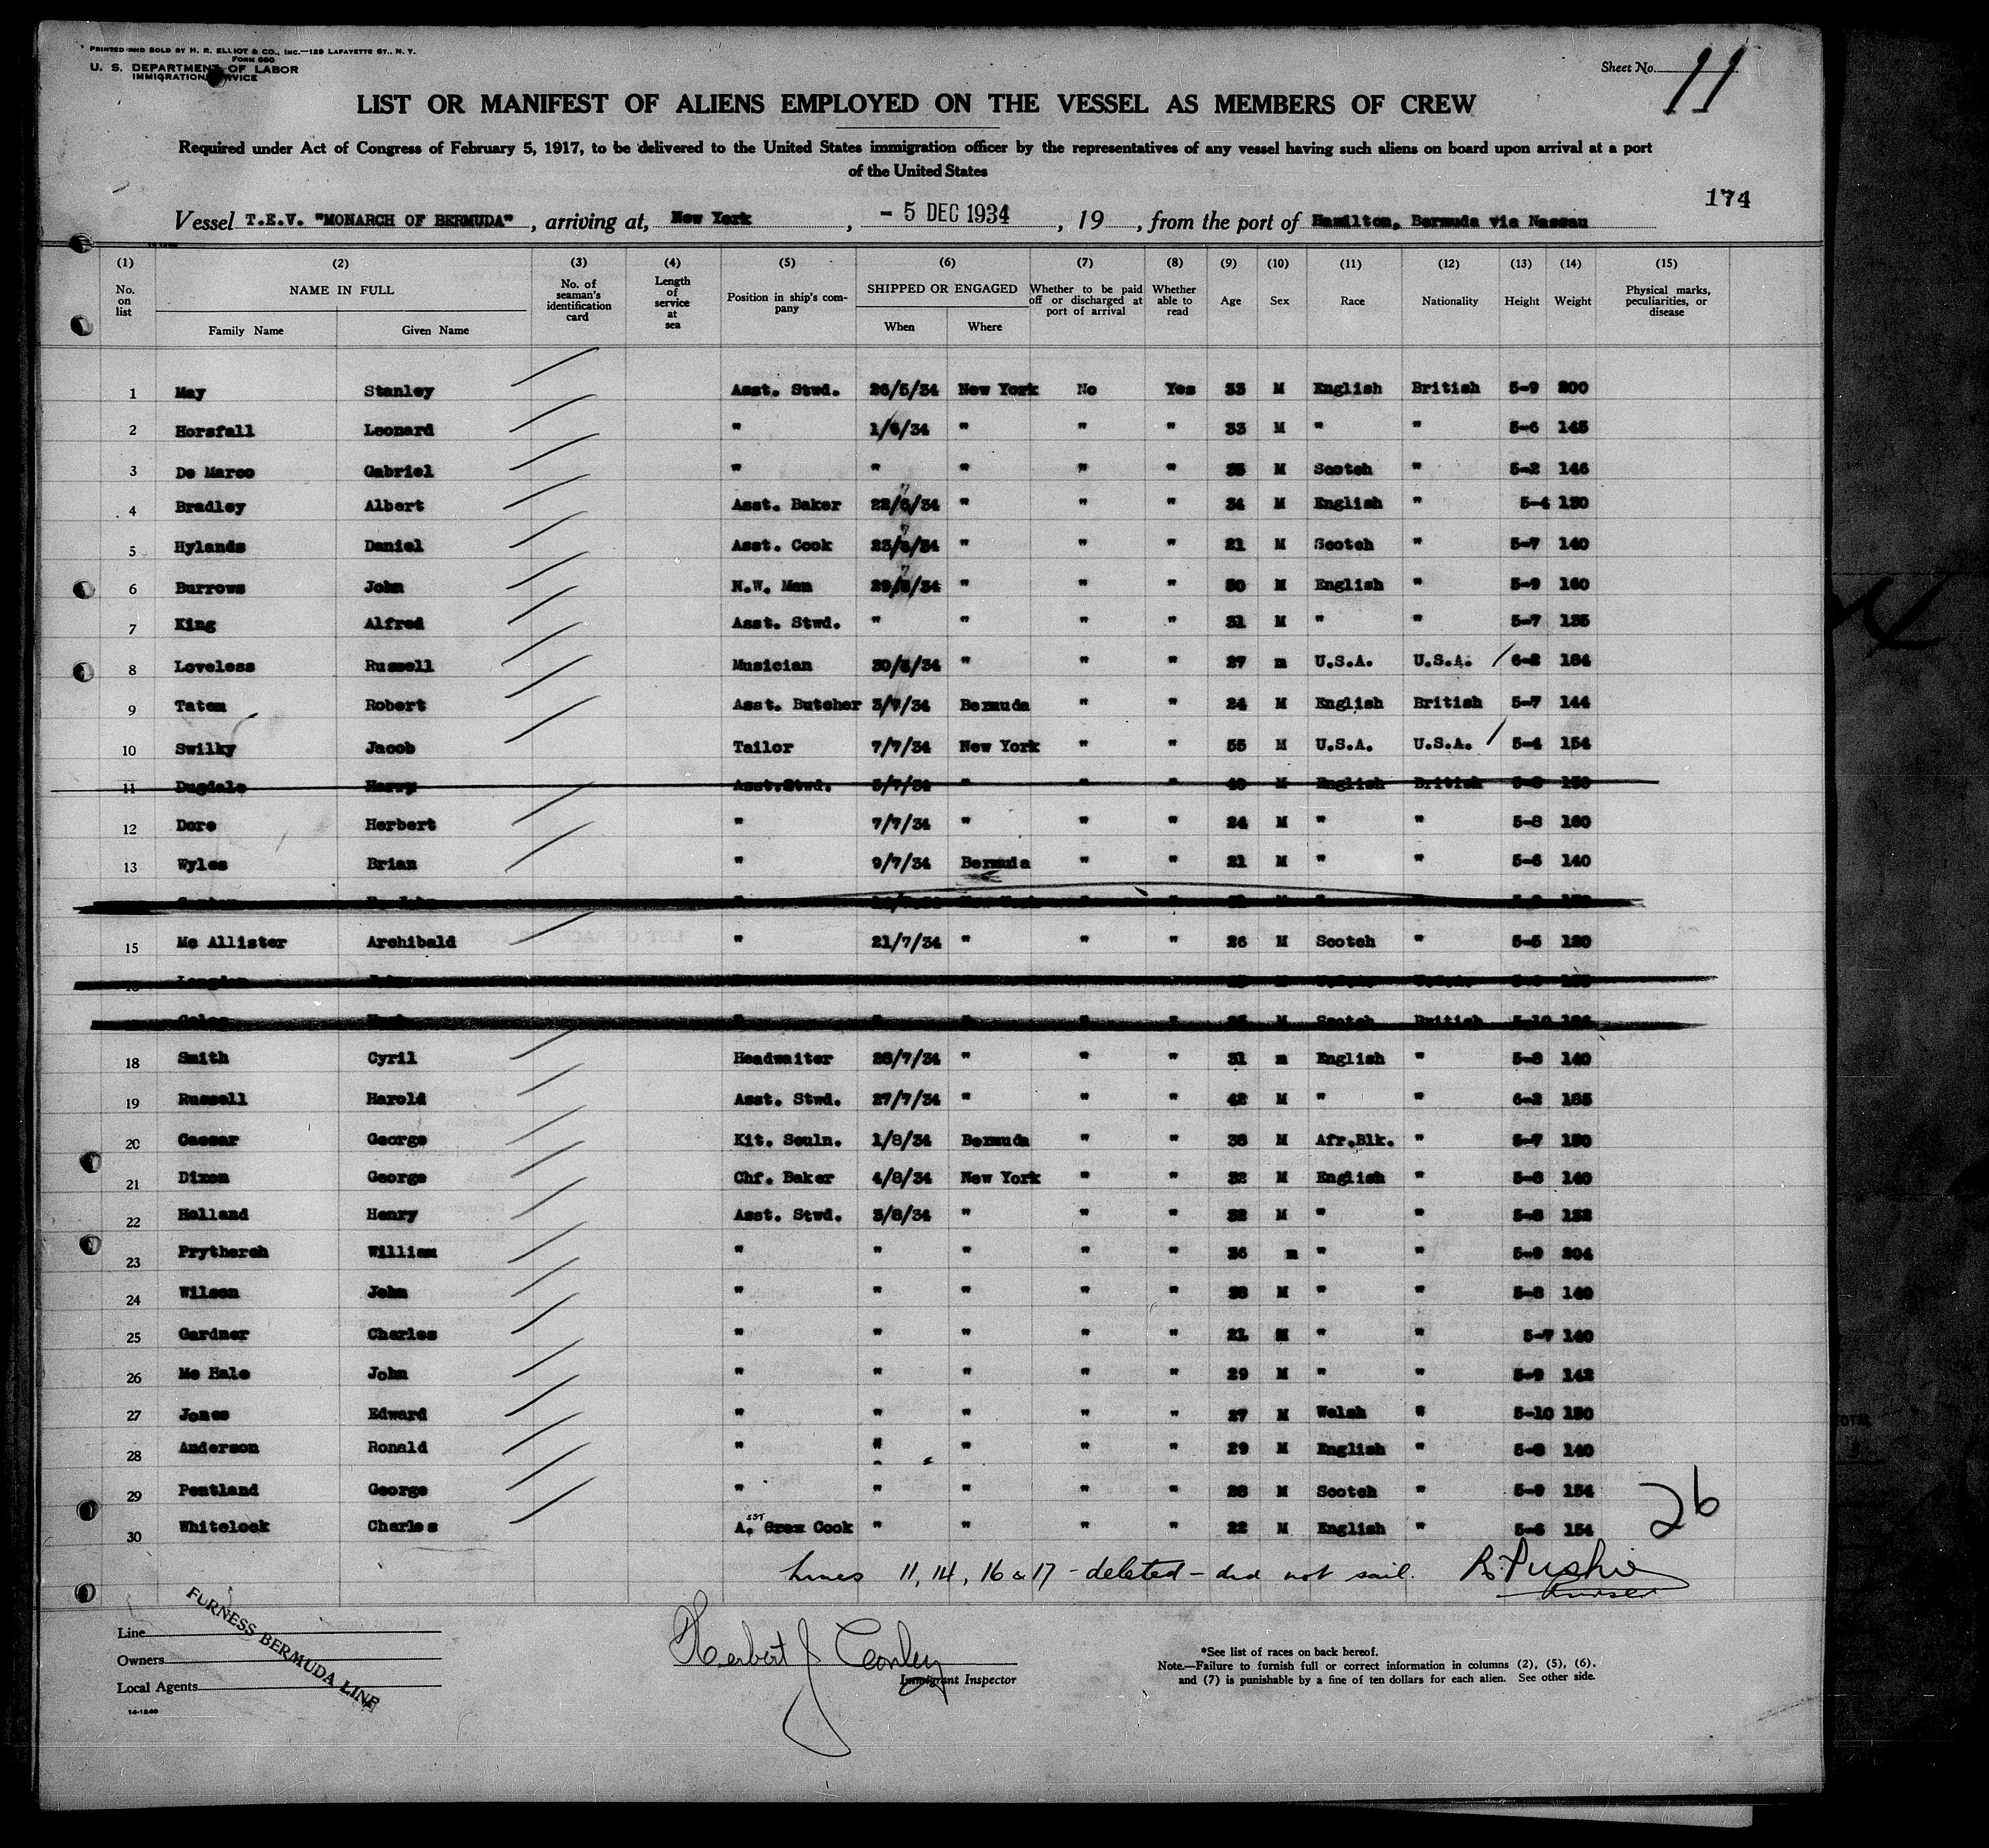 PRINTED AND SOLD BY H. R. ELLIOT & CO., INC.—129 LAFAYETTE ST., N. Y.
FORM 680
U. S. DEPARTMENT OF LABOR
IMMIGRATION SERVICE
Sheet No. 11
LIST OR MANIFEST OF ALIENS EMPLOYED ON THE VESSEL AS MEMBERS OF CREW
Required under Act of Congress of February 5, 1917, to be delivered to the United States immigration officer by the representatives of any vessel having such aliens on board upon arrival at a port
of the United States
174
Vessel T.E.V. "MONARCH OF BERMUDA", arriving at, New York, - 5 DEC 1934, 19, from the port of Hamilton, Bermuda via Nassau
(1) (2) (3) (4) (5) (6) (7) (8) (9) (10) (11) (12) (13) (14) (15)
No. on list NAME IN FULL Family Name Given Name No. of seaman's identification card Length of service at sea Position in ship's company SHIPPED OR ENGAGED When Where Whether to be paid off or discharged at port of arrival Whether able to read Age Sex Race Nationality Height Weight Physical marks, peculiarities, or disease
1 May Stanley Asst. Stwd. 26/5/34 New York No Yes 33 M English British 5-9 200
2 Horsfall Leonard " 1/6/34 " " " 33 M " " 5-6 145
3 De Marco Gabriel " " " " " 35 M Scotch " 5-2 146
4 Bradley Albert Asst. Baker 22/6/34 " " " 34 M English " 5-4 130
5 Hylands Daniel Asst. Cook 23/6/34 " " " 21 M Scotch " 5-7 140
6 Burrows John N.W. Man 29/ /34 " " " 30 M English " 5-9 160
7 King Alfred Asst. Stwd. " " " " 31 M " " 5-7 135
8 Loveless Russell Musician 30/ /34 " " " 27 m U.S.A. U.S.A. 6-2 184
9 Tatem Robert Asst. Butcher 3/7/34 Bermuda " " 24 M English British 5-7 144
10 Swilky Jacob Tailor 7/7/34 New York " " 55 M U.S.A. U.S.A. 5-4 154
11 Dugdale Harry Asst.Stwd. 5/7/34 " " " 40 M English British
12 Dore Herbert " 7/7/34 " " " 24 M " " 5-8 160
13 Wyles Brian " 9/7/34 Bermuda " " 21 M " " 5-6 140
15 Mc Allister Archibald " 21/7/34 " " " 26 M Scotch " 5-5 120
Scotch British
18 Smith Cyril Headwaiter 28/7/34 " " " 31 m English " 5-8 140
19 Russell Harold Asst. Stwd. 27/7/34 " " " 42 M " " 6-2 185
20 Caesar George Kit. Souln. 1/8/34 Bermuda " " 38 M Afr.Blk. " 5-7 150
21 Dixon George Chf. Baker 4/8/34 New York " " 32 M English " 5-8 140
22 Holland Henry Asst. Stwd. 3/8/34 " " " 32 M " " 5-8 132
23 Prytherch William " " " " " 36 m " " 5-9 204
24 Wilson John " " " " " 38 M " " 5-8 140
25 Gardner Charles " " " " " 21 M " " 5-7 140
26 Mc Hale John " " " " " 29 M " " 5-9 142
27 Jones Edward " " " " " 27 M Welsh " 5-10 150
28 Anderson Ronald " " " " " 29 M English " 5-8 140
29 Pentland George " " " " " 28 M Scotch " 5-9 154
30 Whitelock Charles A. SST Crew Cook " " " " 22 M English " 5-6 154
26
Lines 11, 14, 16 & 17 - deleted - did not sail. R. Pushie
Purser
FURNESS BERMUDA LINE
Line
Owners
Local Agents
14-1240
Herbert J Conley
Immigrant Inspector
*See list of races on back hereof.
Note.—Failure to furnish full or correct information in columns (2), (5), (6),
and (7) is punishable by a fine of ten dollars for each alien. See other side.